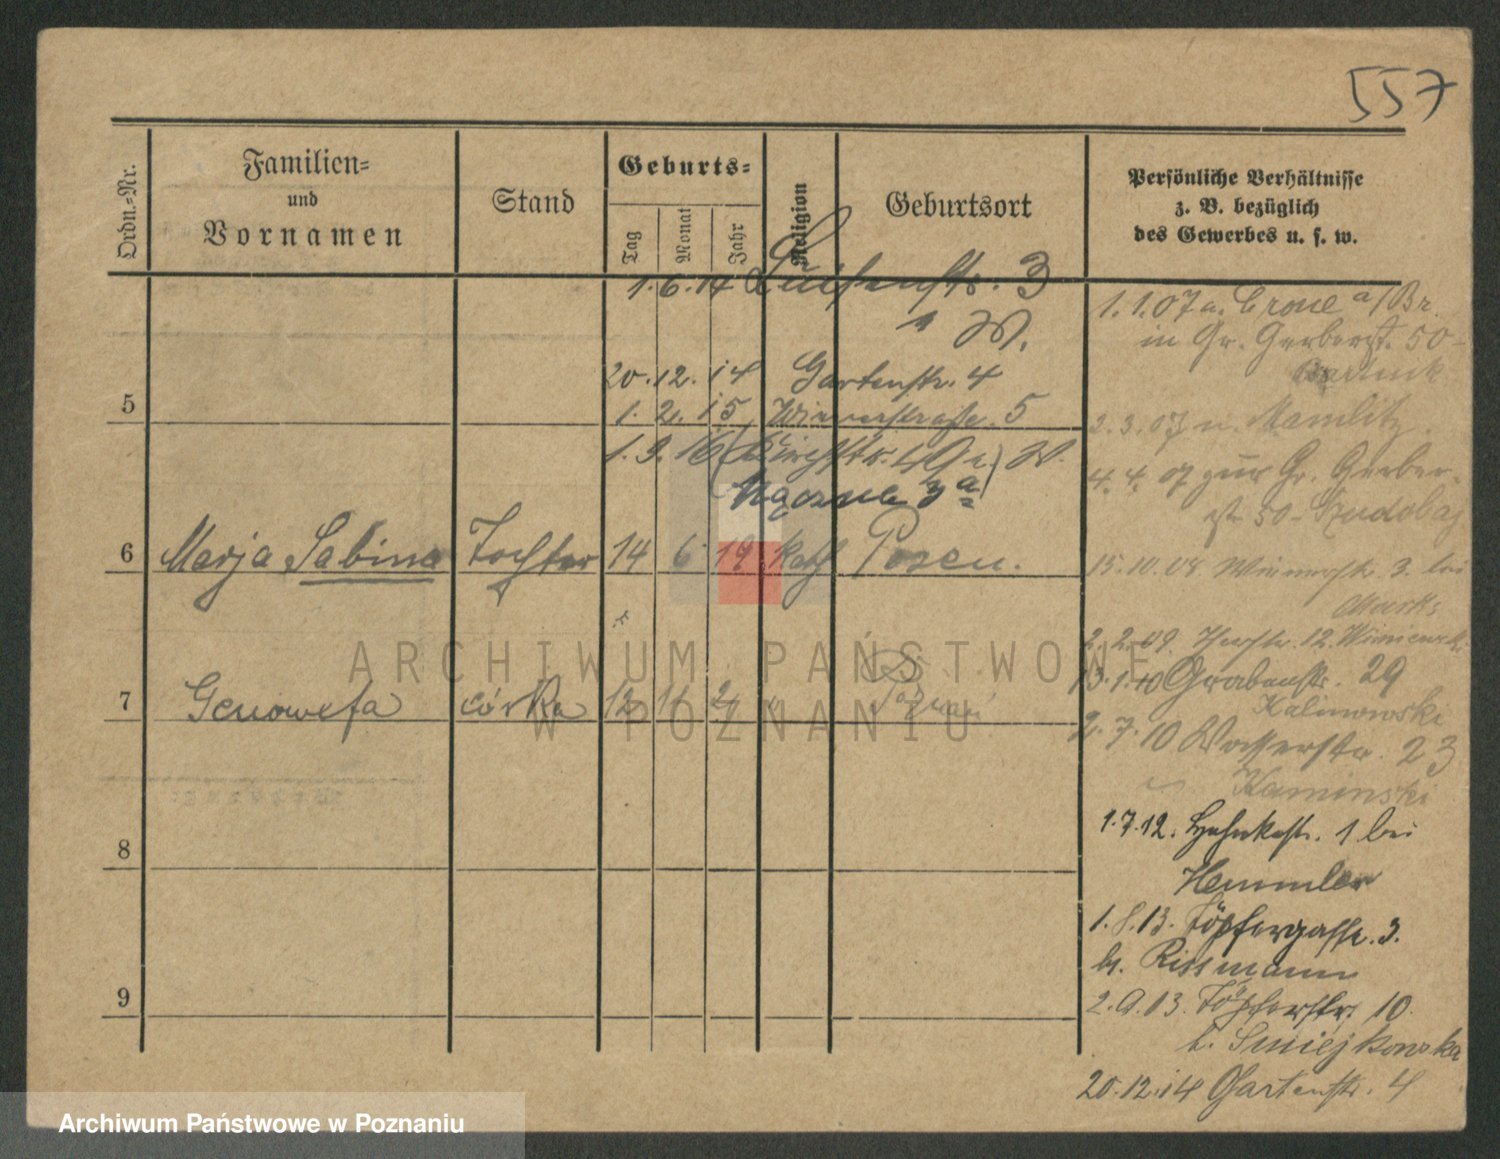 557
Ordn.-Nr.
Familien-
und
Vornamen
Stand
Geburts-
Tag
Monat
Jahr
Religion
Geburtsort
Persönliche Verhältnisse
z. B. bezüglich
des Gewerbes u. s. w.
1.6.14 Luisenstr. 3
W.
20.12.14 Gartenstr. 4
5
1.2.15 Wienerstraße 5
1.3.16 W.
Łączna 3a
6 Marja Sabina Tochter 14 6 19 kath Posen.
7 Genowefa córka 12 11 2 " Poznań
8
9
1.1.07 a. Crone a/Br.
in Gr. Gerberst. 50-
2.3.07 n. Mamlitz
4.4.07 zur Gr. Gerber-
st 50-
15.10.08 Wienerstr. 3. bei
Marks
2.2.09. 12.
13.1.10 Grabenstr. 29
Kalinowski
2.7.10 Wasserstr. 23
Kaminski
1.7.12. 1 bei
Hemmler
1.8.13. Töpfergasse. 3.
b. Rissmann
2.9.13. Töpferstr. 10.
b. Smiejkowska
20.12.14 Gartenstr. 4
ARCHIWUM PAŃSTWOWE
W POZNANIU
Archiwum Państwowe w Poznaniu